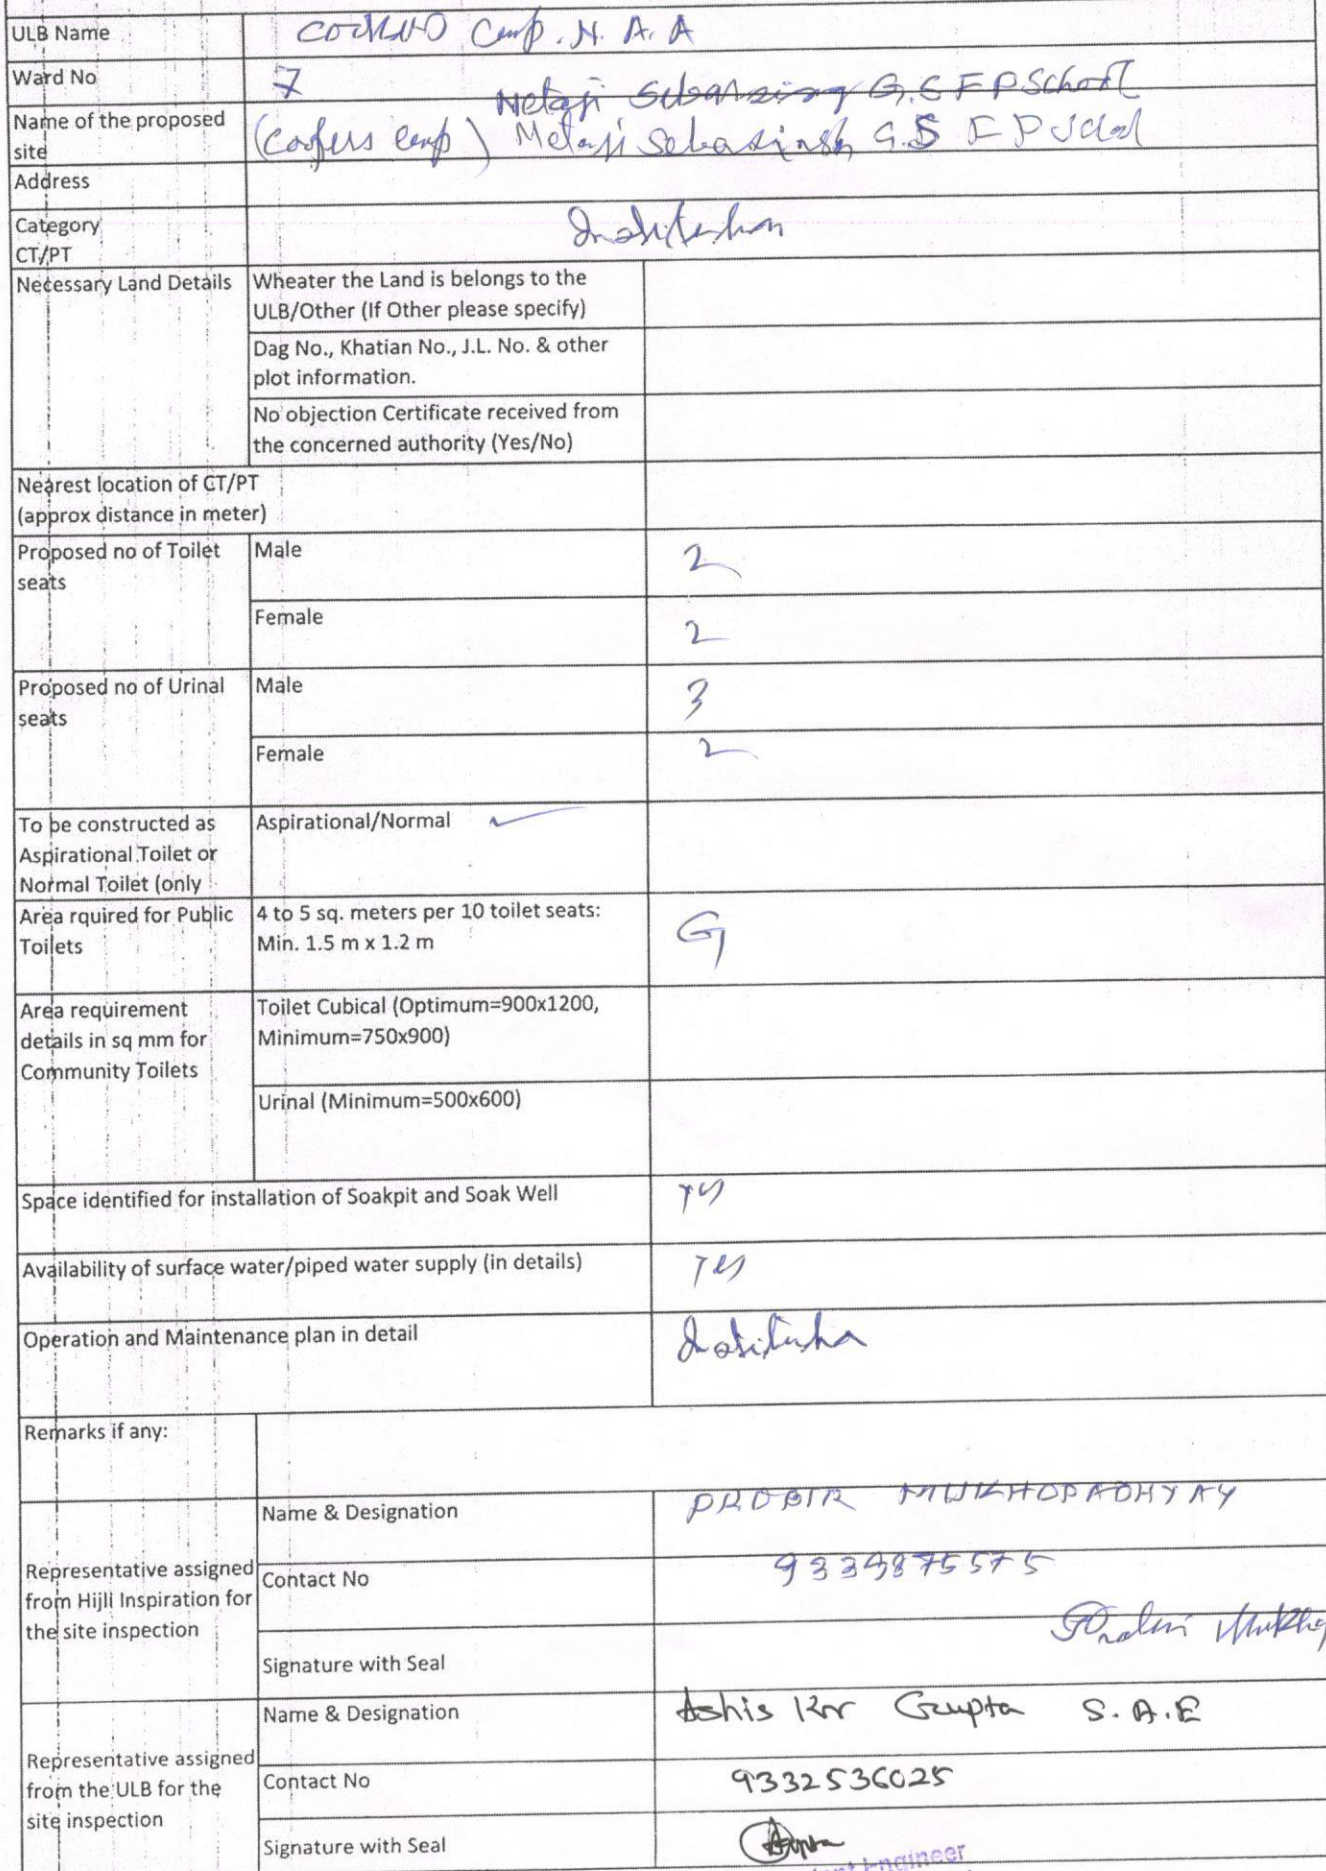 ULB Name Camp. N. A. A
Ward No 7
Netaji G.S F P School
Name of the proposed site (Coopers Camp) Netaji G.S F P School
Address
Category
CT/PT Institution
Necessary Land Details Wheater the Land is belongs to the
ULB/Other (If Other please specify)
Dag No., Khatian No., J.L. No. & other
plot information.
No objection Certificate received from
the concerned authority (Yes/No)
Nearest location of CT/PT
(approx distance in meter)
Proposed no of Toilet
seats
Male 2
Female 2
Proposed no of Urinal
seats
Male 3
Female 2
To be constructed as
Aspirational Toilet or
Normal Toilet (only
Aspirational/Normal ✓
Area rquired for Public
Toilets
4 to 5 sq. meters per 10 toilet seats:
Min. 1.5 m x 1.2 m
G
Area requirement
details in sq mm for
Community Toilets
Toilet Cubical (Optimum=900x1200,
Minimum=750x900)
Urinal (Minimum=500x600)
Space identified for installation of Soakpit and Soak Well yes
Availability of surface water/piped water supply (in details) yes
Operation and Maintenance plan in detail
Remarks if any:
Representative assigned
from Hijli Inspiration for
the site inspection
Name & Designation PROBIR MUKHOPADHYAY
Contact No 9339875575
Signature with Seal
Representative assigned
from the ULB for the
site inspection
Name & Designation Ashis Kr Gupta S.A.E
Contact No 9332536025
Signature with Seal Gupta
Engineer